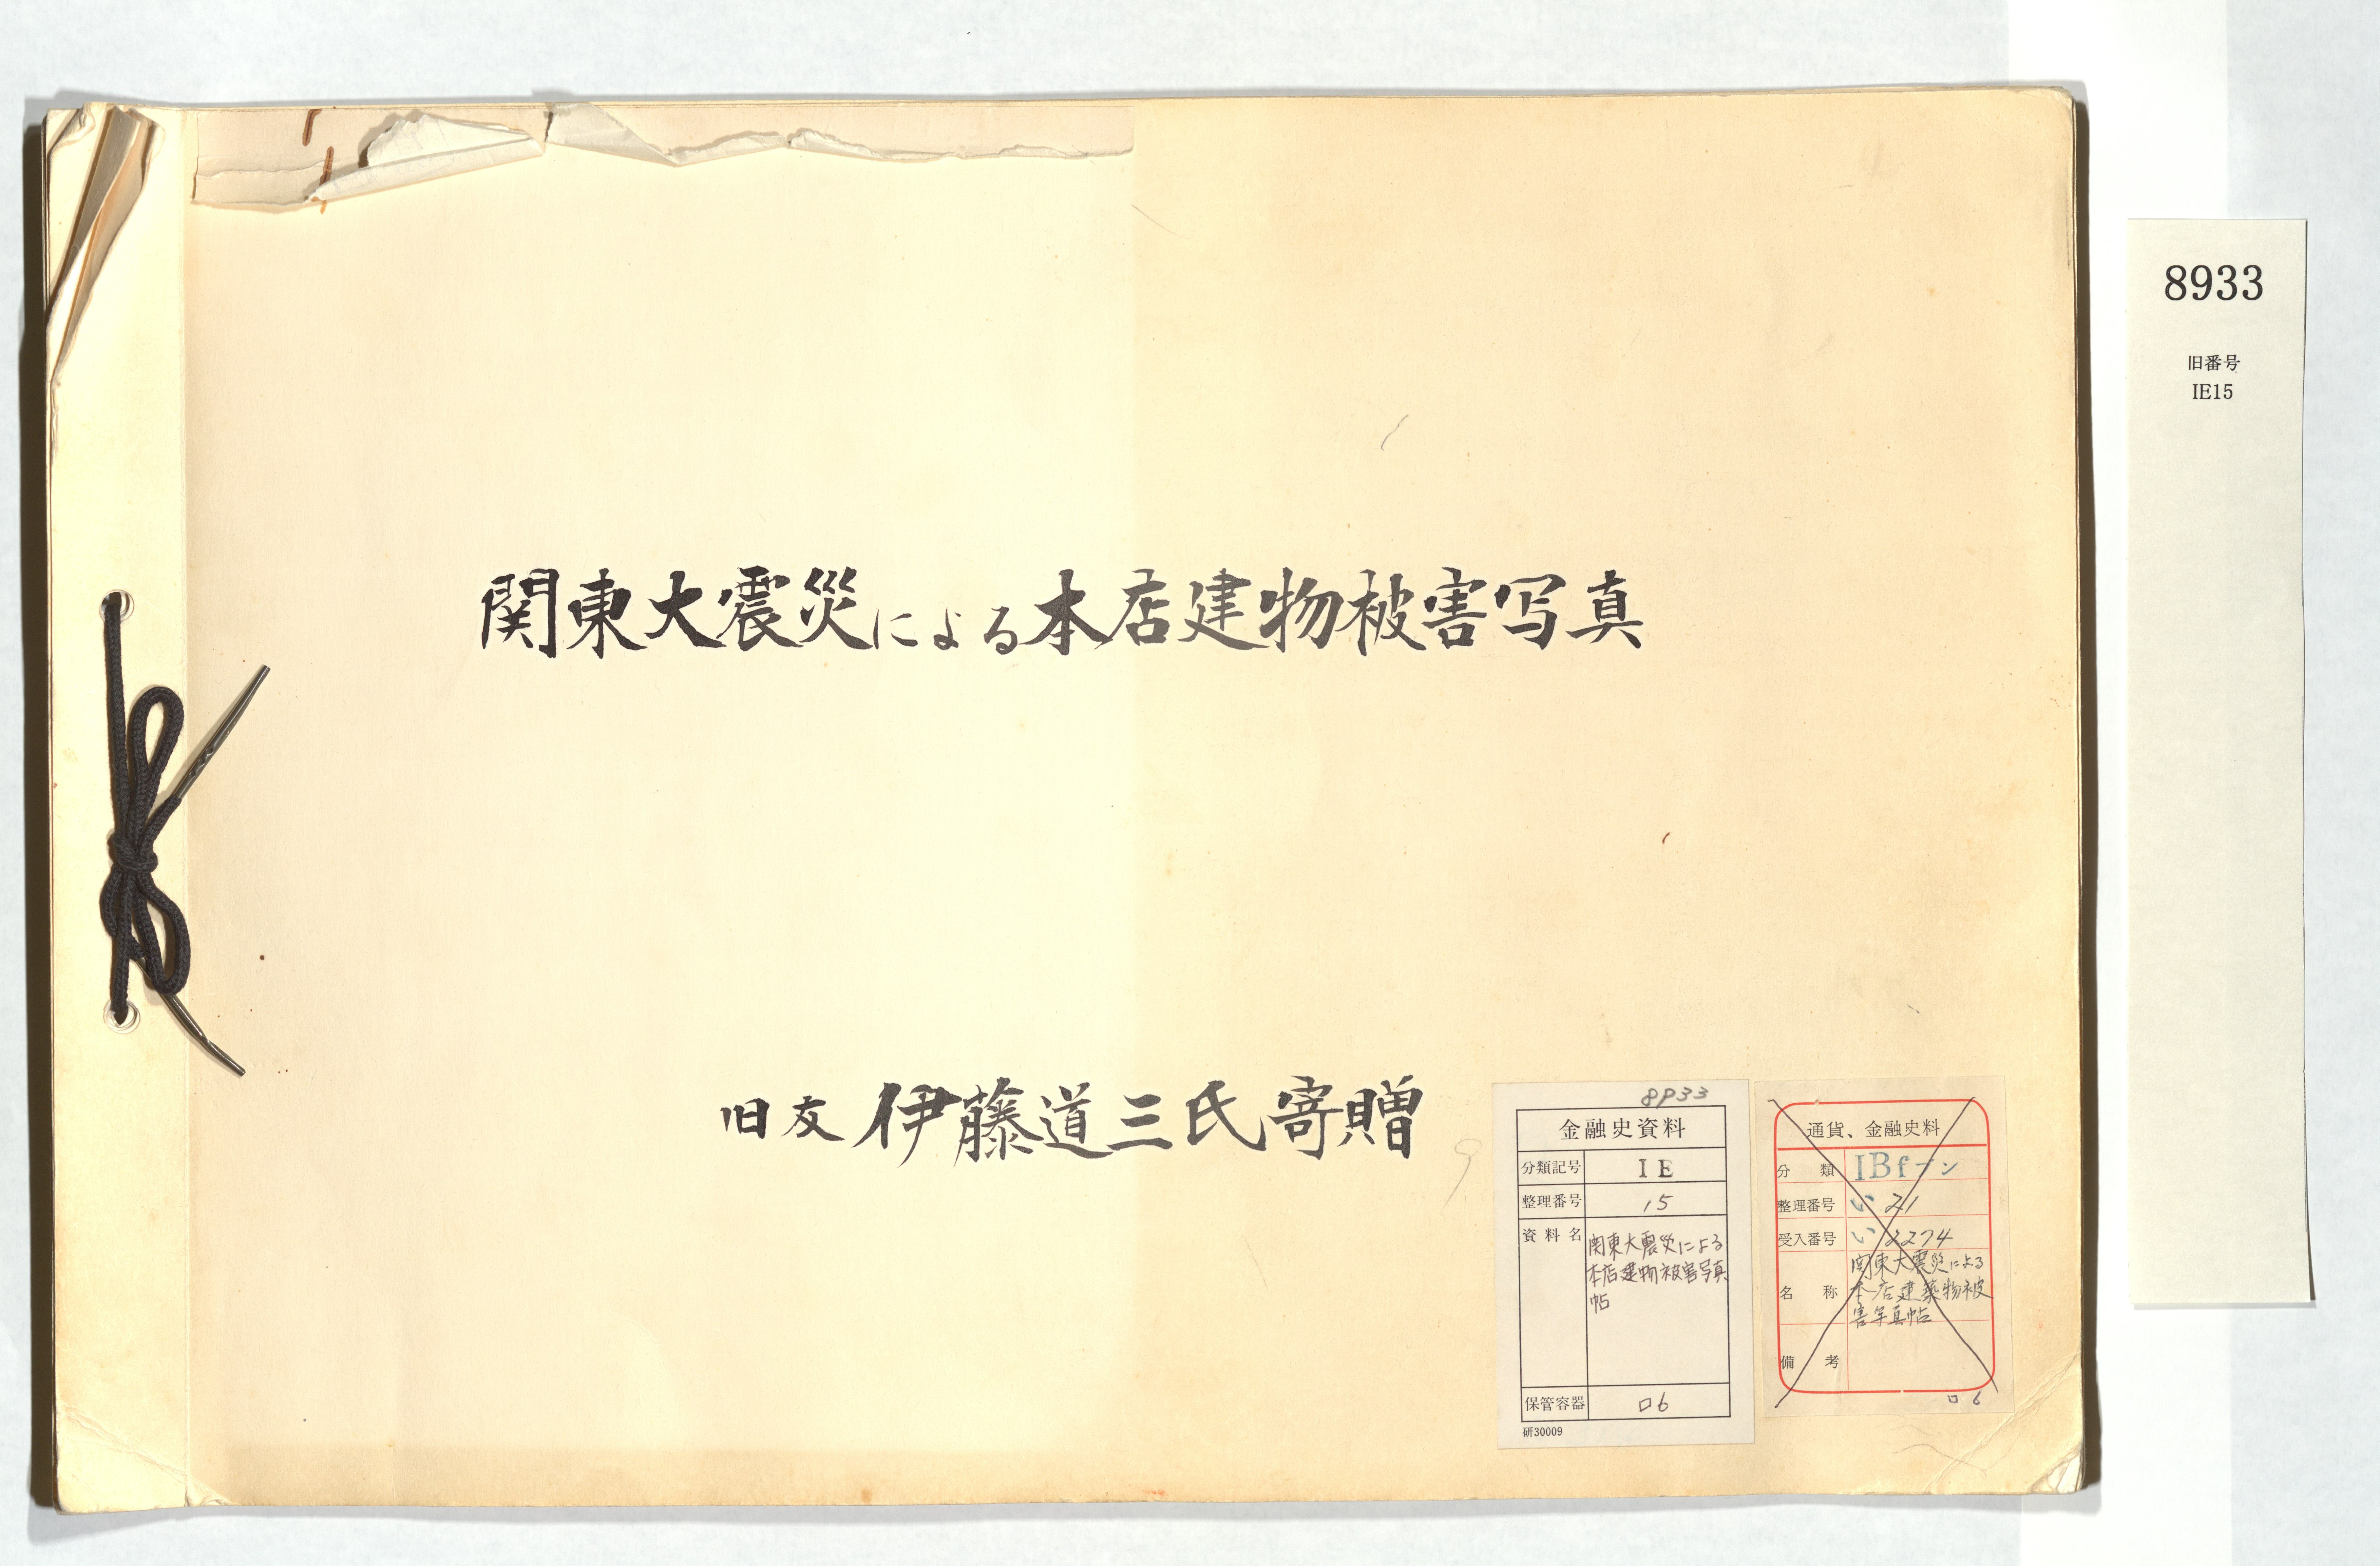 関東大震災による本店建物被害写真
旧友 伊藤道三氏寄贈
8933
金融史資料
分類記号 IE
整理番号 15
資料名 関東大震災による
本店建物被害写真
帖
保管容器 ロ6
研30009
通貨、金融史料
分類 IBf-ン
整理番号 い 21
受入番号 い 2274
名称 関東大震災による
本店建築物被
害写真帖
備考
ロ6
8933
旧番号
IE15